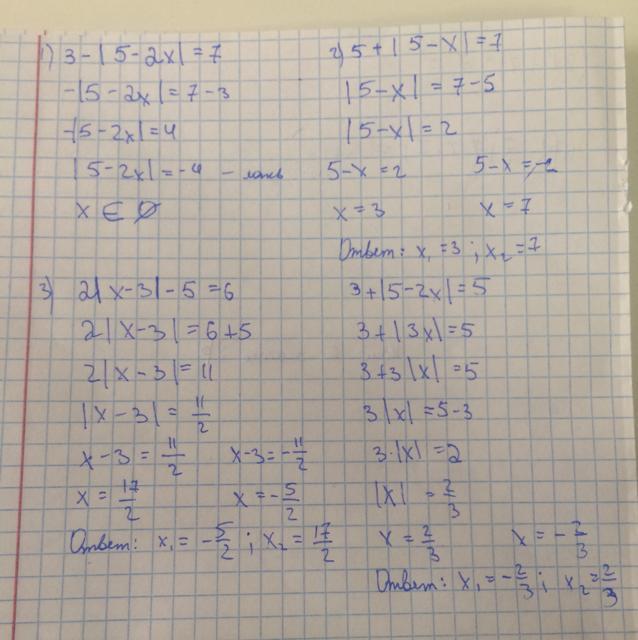 1) 3-|5-2x|=7
-|5-2x|=7-3
-|5-2x|=4
|5-2x|=-4 -
x ∈ ∅
2) 5+|5-x|=7
|5-x|=7-5
|5-x|=2
5-x=2 5-x=-2
x=3 x=7
Ответ: x₁=3; x₂=7
3) 2|x-3|-5=6
2|x-3|=6+5
2|x-3|=11
|x-3|=11/2
x-3=11/2 x-3=-11/2
x=17/2 x=-5/2
Ответ: x₁=-5/2; x₂=17/2
3+|5-2x|=5
3+|3x|=5
3+3|x|=5
3|x|=5-3
3·|x|=2
|x|=2/3
x=2/3 x=-2/3
Ответ: x₁=-2/3; x₂=2/3